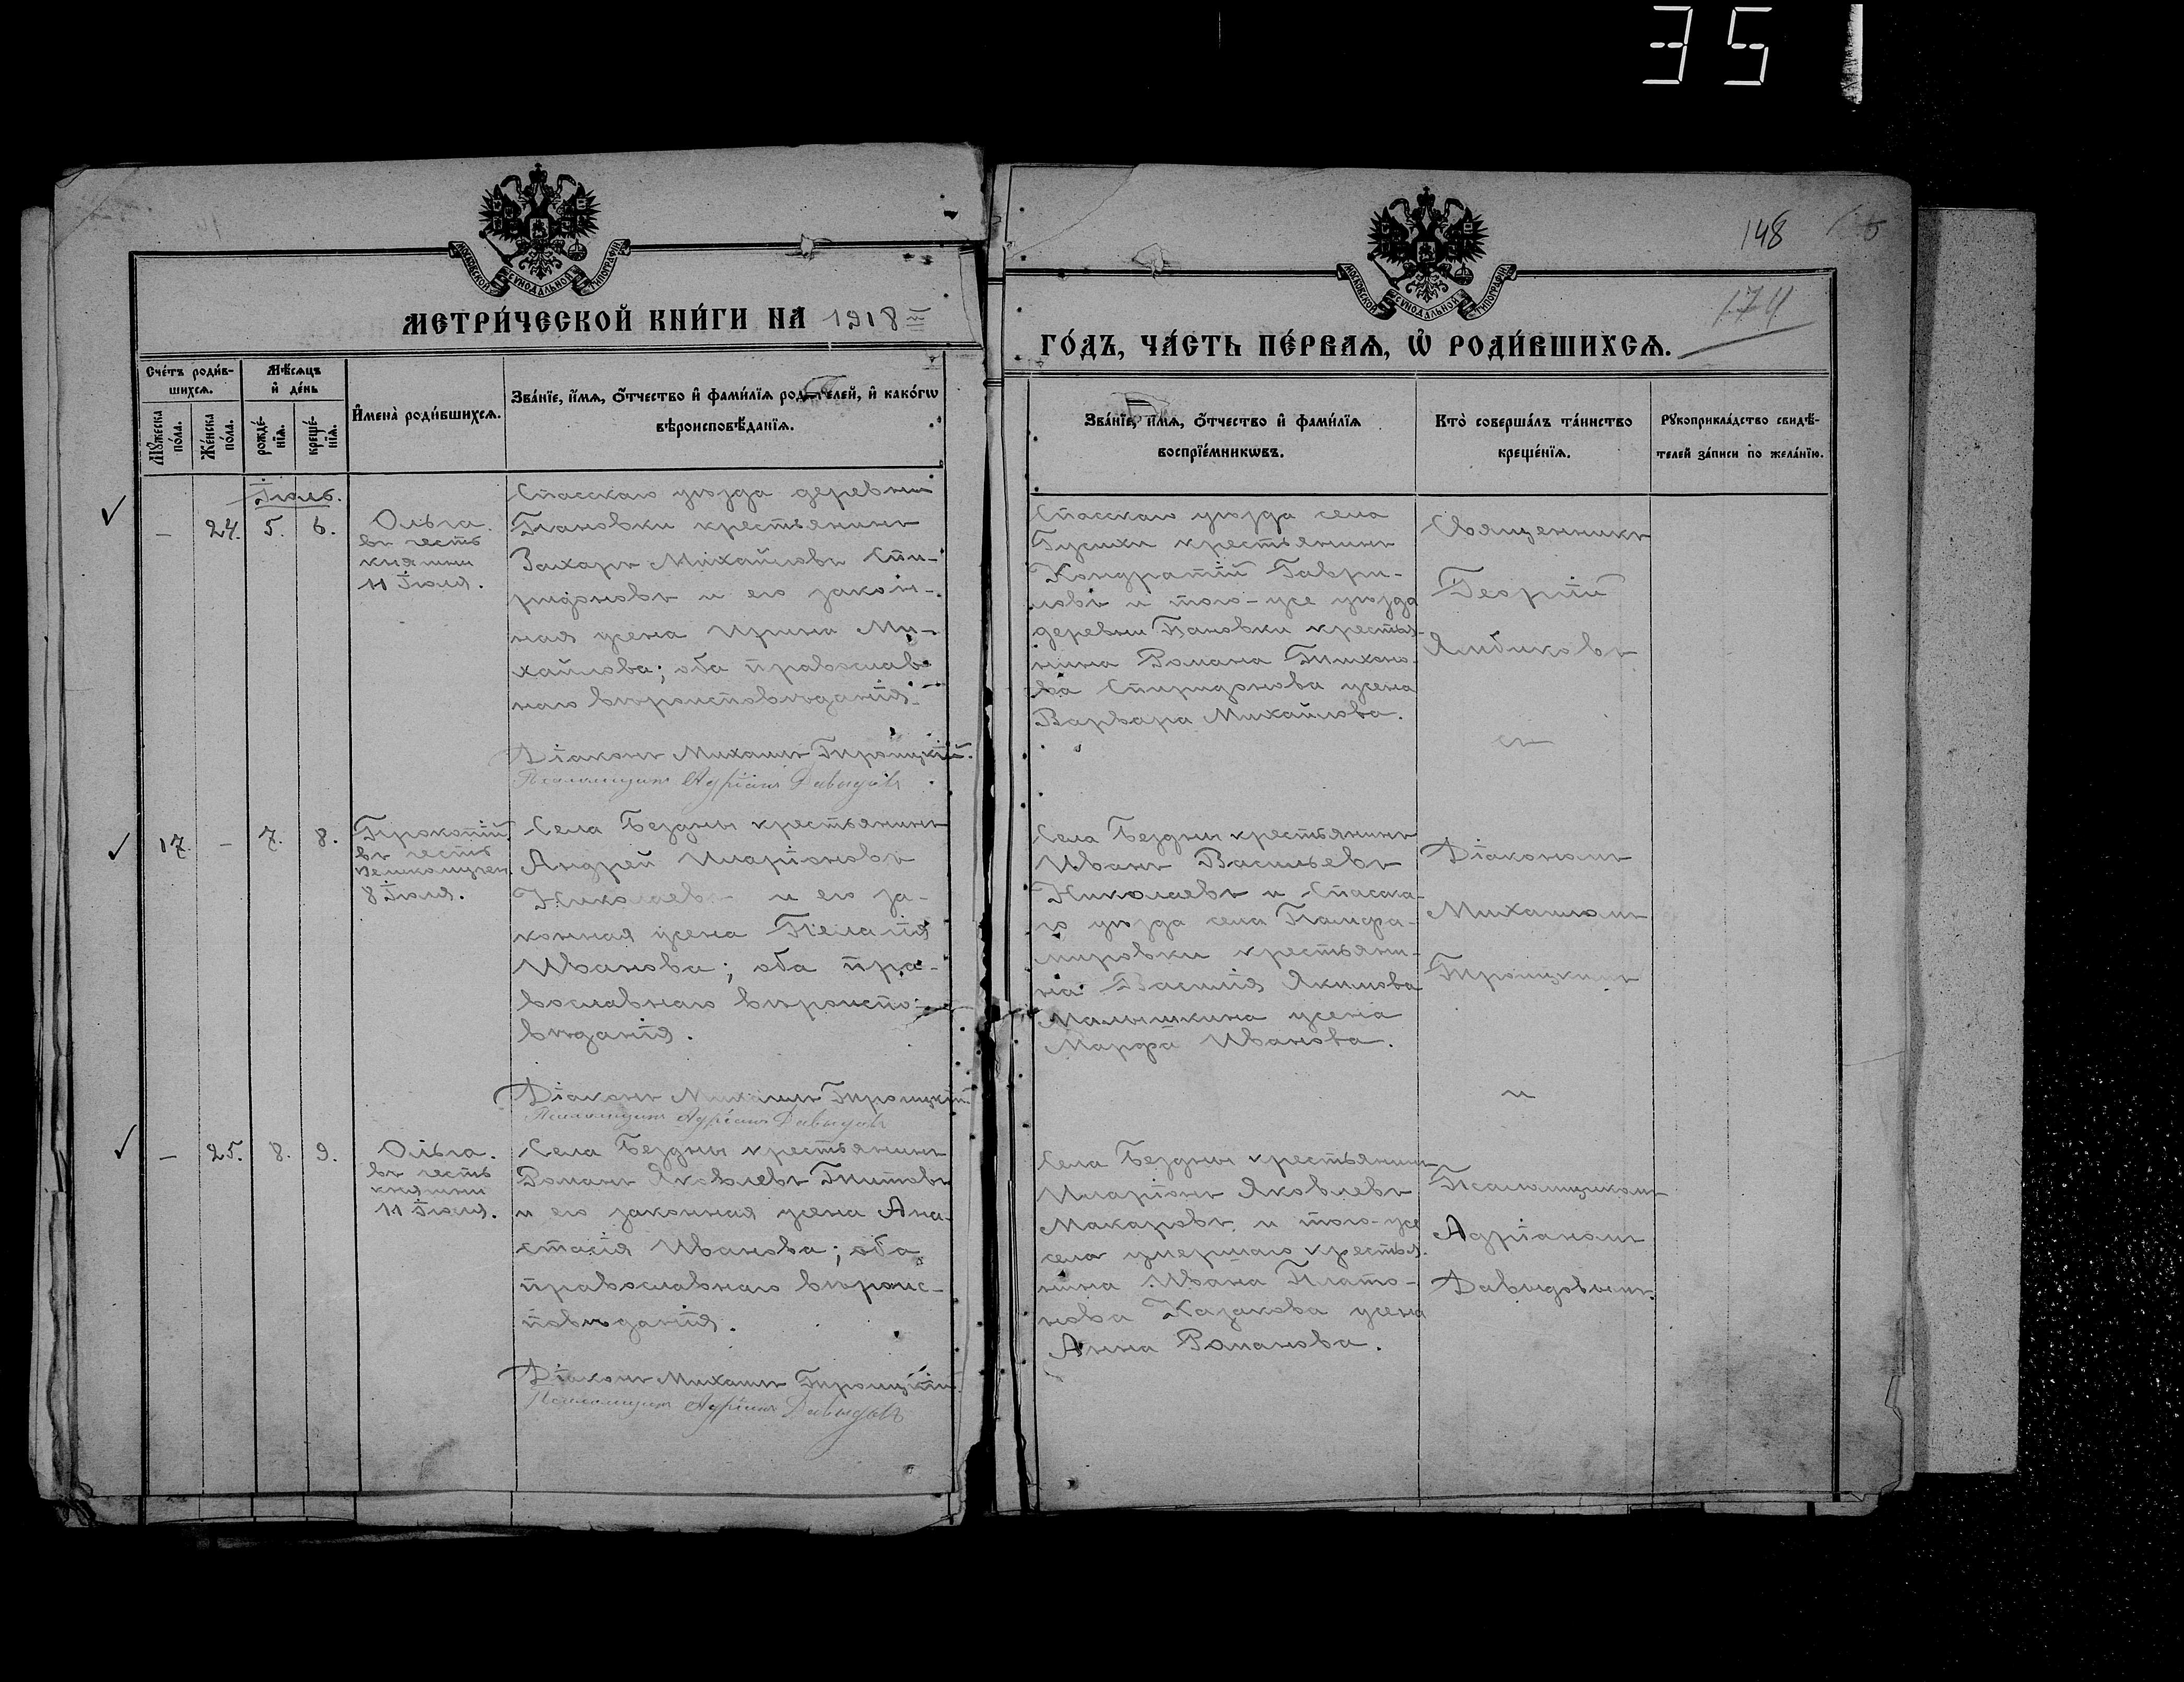 35
МОСКОВСКОЙ СѴНОДАЛЬНОЙ ТИПОГРАФІИ
МЕТРИ́ЧЕСКОЙ КНИ́ГИ НА 1918 й
Сче́тъ роди́в-
шихсѧ.
Мꙋжеска
по́ла.
Же́нска
по́ла.
Мѣ́сѧцъ
и҆ де́нь
рожде́-
нїѧ.
креще́-
нїѧ.
И҆мена̀ роди́вшихсѧ.
Зва́нїе, и҆́мѧ, ѻ҆́тчество и҆ фами́лїѧ роди́телей, и҆ како́гѡ
вѣроисповѣ́данїѧ.
Іюль.
— 24. 5. 6.
Ольга.
въ честь
княгини
11 Іюля.
Спасскаго уѣзда деревни
Пановки крестьянинъ
Захаръ Михайловъ Спи-
ридоновъ и его закон-
ная жена Ирина Ми-
хайлова; оба православ-
наго вѣроисповѣданія.
Діаконъ Михаилъ Троицкій.
Псаломщикъ Адріанъ Давыдовъ
17. — 7. 8.
Прокопій.
въ честь
Великомучен.
8 Іюля.
Села Бездны крестьянинъ
Андрей Иларіоновъ
Николаевъ и его за-
конная жена Пелагія
Иванова; оба пра-
вославнаго вѣроиспо-
вѣданія.
Діаконъ Михаилъ Троицкій
Псаломщикъ Адріанъ Давыдовъ
— 25. 8. 9.
Ольга.
въ честь
княгини
11 Іюля.
Села Бездны крестьянинъ
Романъ Яковлевъ Титовъ
и его законная жена Ана-
стасія Иванова; оба
православнаго вѣроис-
повѣданія.
Діаконъ Михаилъ Троицкій.
Псаломщикъ Адріанъ Давыдовъ
148
174
МОСКОВСКОЙ СѴНОДАЛЬНОЙ ТИПОГРАФІИ
ГО́ДЪ, ЧА́СТЬ ПЕ́РВАѦ, Ѡ҆ РОДИ́ВШИХСѦ.
Зва́нїе, и҆́мѧ, ѻ҆́тчество и҆ фами́лїѧ
воспрїе́мникѡвъ.
Кто̀ соверша́лъ та́инство
креще́нїѧ.
Рꙋкоприкла́дство свидѣ́-
телей за́писи по жела́нїю.
Спасскаго уѣзда села
Гусихи крестьянинъ
Кондратій Гаври-
ловъ и того-же уѣзда
деревни Пановки крестья-
нина Романа Тихоно-
ва Спиридонова жена
Варвара Михайлова.
Священникъ
Георгій
Ямбиковъ
съ
Села Бездны крестьянинъ
Иванъ Васильевъ
Николаевъ и Спасска-
го уѣзда села
крестьяни-
на Василія Якимова
Малышкина жена
Марфа Иванова.
Діакономъ
Михаиломъ
Троицкимъ
и
Села Бездны крестьянинъ
Иларіонъ Яковлевъ
Макаровъ и того-же
села умершаго крестья-
нина Ивана Плато-
нова Казакова жена
Анна Романова.
Псаломщикомъ
Адріаномъ
Давыдовымъ.